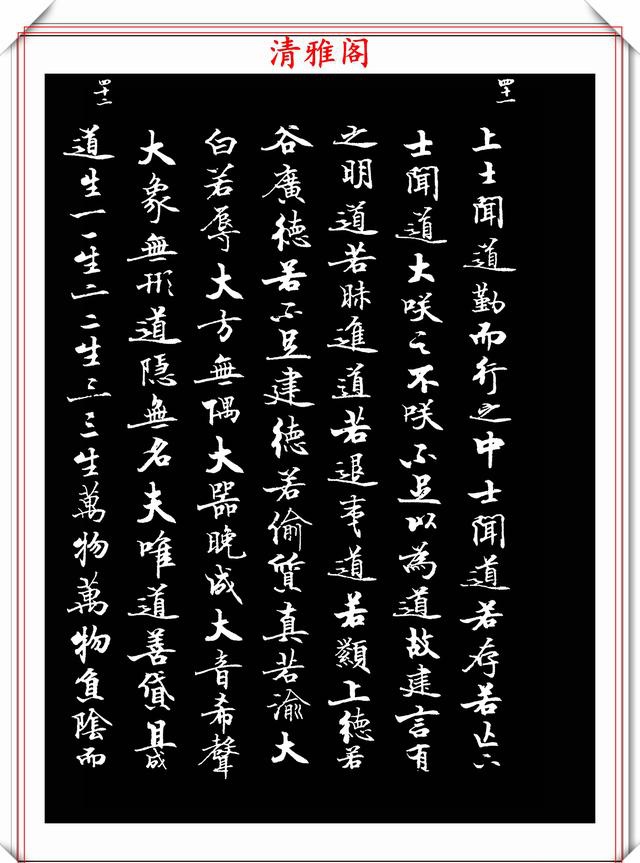 清雅阁
四十一
上士聞道勤而行之中士聞道若存若亡下
士聞道大咲之不咲不足以為道故建言有
之明道若昧進道若退夷道若纇上徳若
谷廣徳若不足建徳若偷質真若渝大
白若辱大方無隅大器晚成大音希聲
大象無形道隱無名夫唯道善貸且成
四十二
道生一一生二二生三三生萬物萬物負陰而